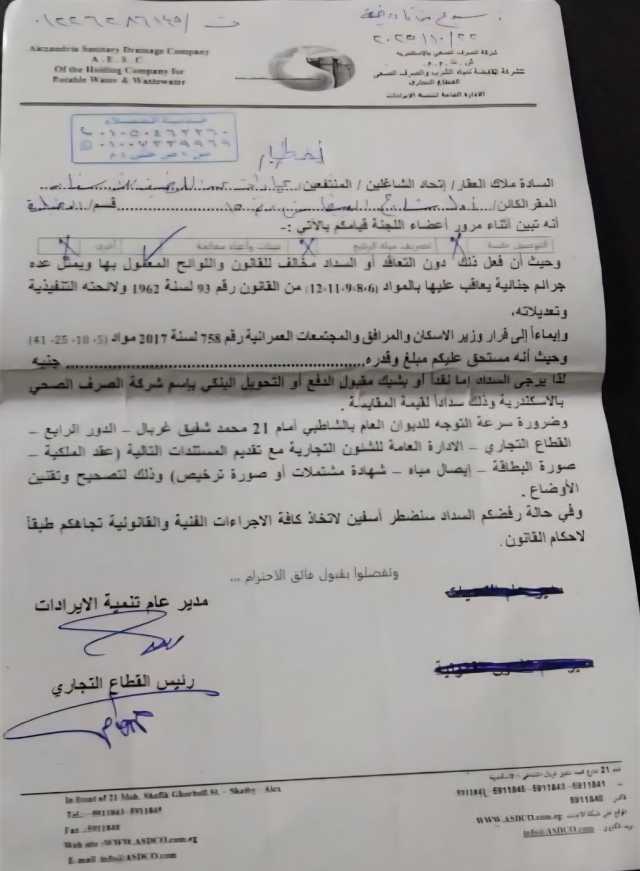 ت / ٠١٢٢٦٢٨٦١٤٥
٢٠٢٥/١٠/٢٢
Alexandria Sanitary Drainage Company
A . E . S . C .
Of the Holding Company for
Potable Water & Wastewater
شركة الصرف الصحي بالاسكندرية
ش . ت . ق . م . م
الشركة القابضة لمياه الشرب والصرف الصحى
القطاع التجاري
الادارة العامة لتنمية الايرادات
خدمة العملاء
اخطار
السادة ملاك العقار/ إتحاد الشاغلين / المنتفعين/
المقر الكائن/ قسم/
أنه تبين أثناء مرور أعضاء اللجنة قيامكم بالآتي :-
التوصيل خلسة تصريف مياه الرشح مبينات وأعباء مضافة أخرى
وحيث أن فعل ذلك دون التعاقد أو السداد مخالف للقانون واللوائح المعمول بها ويمثل عده
جرائم جنائية يعاقب عليها بالمواد (12-11-9-8-6) من القانون رقم 93 لسنة 1962 ولائحته التنفيذية
وتعديلاته،
وإيماءاً إلى قرار وزير الاسكان والمرافق والمجتمعات العمرانية رقم 758 لسنة 2017 مواد (5- 10- 25- 41)
وحيث أنه مستحق عليكم مبلغ وقدره......................................................... جنيه
لذا يرجى السداد إما نقداً أو بشيك مقبول الدفع أو التحويل البنكي بإسم شركة الصرف الصحي
بالاسكندرية وذلك سداداً لقيمة المقايسة .
وضرورة سرعة التوجه للديوان العام بالشاطبي أمام 21 محمد شفيق غربال – الدور الرابع –
القطاع التجاري – الادارة العامة للشئون التجارية مع تقديم المستندات التالية (عقد الملكية –
صورة البطاقة – إيصال مياه – شهادة مشتملات أو صورة ترخيص) وذلك لتصحيح وتقنين
الأوضاع .
وفي حالة رفضكم السداد سنضطر أسفين لاتخاذ كافة الاجراءات الفنية والقانونية تجاهكم طبقاً
لاحكام القانون.
وتفضلوا بقبول فائق الاحترام ...
مدير عام تنمية الايرادات
رئيس القطاع التجاري
In front of 21 Moh. Shafik Ghorball St. – Shatby – Alex
Tel.: –5911843–5911845
Fax .:5911840
Web site :–WWW.ASDCO.com.eg
E-mail info@ASDCO.com
5911841 –5911843 –5911845 –
فاكس 5911840
WWW.ASDCO.com.eg
info@ASDCO.com